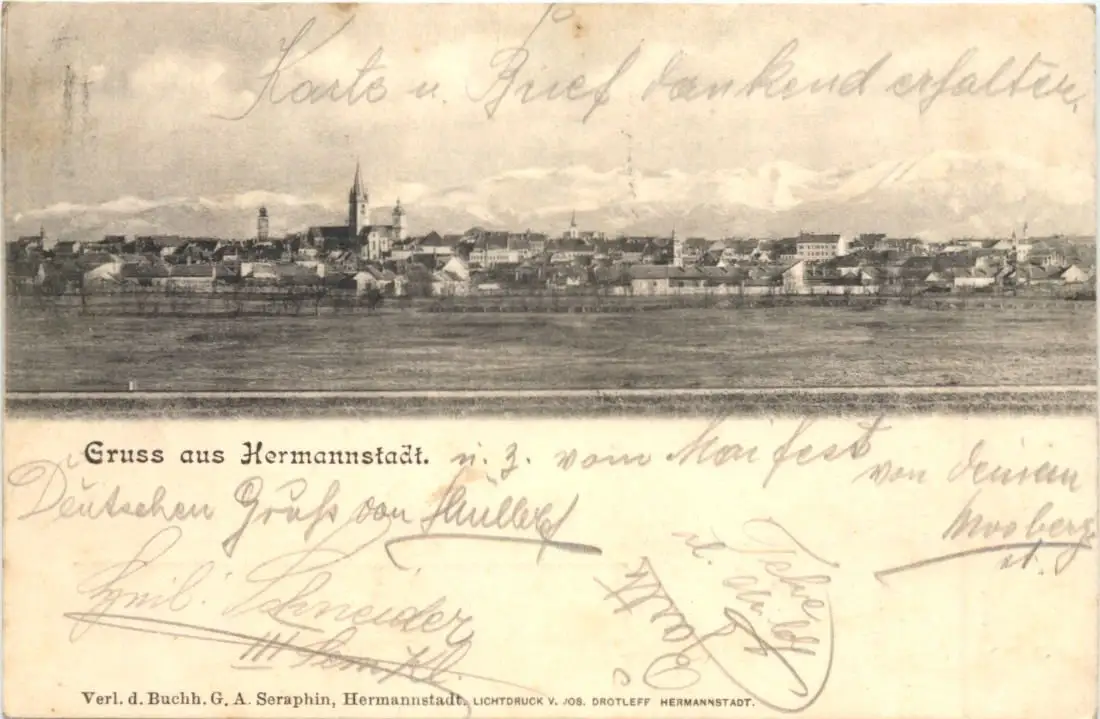 Karte u. Brief dankend erhalten,
Gruss aus Hermannstadt. u. z. vom Maifest
von deinem
Deutschen Gruß von
Moosberg
Schneider
III Sem. Kl.
Verl. d. Buchh. G. A. Seraphin, Hermannstadt. LICHTDRUCK V. JOS. DROTLEFF HERMANNSTADT.